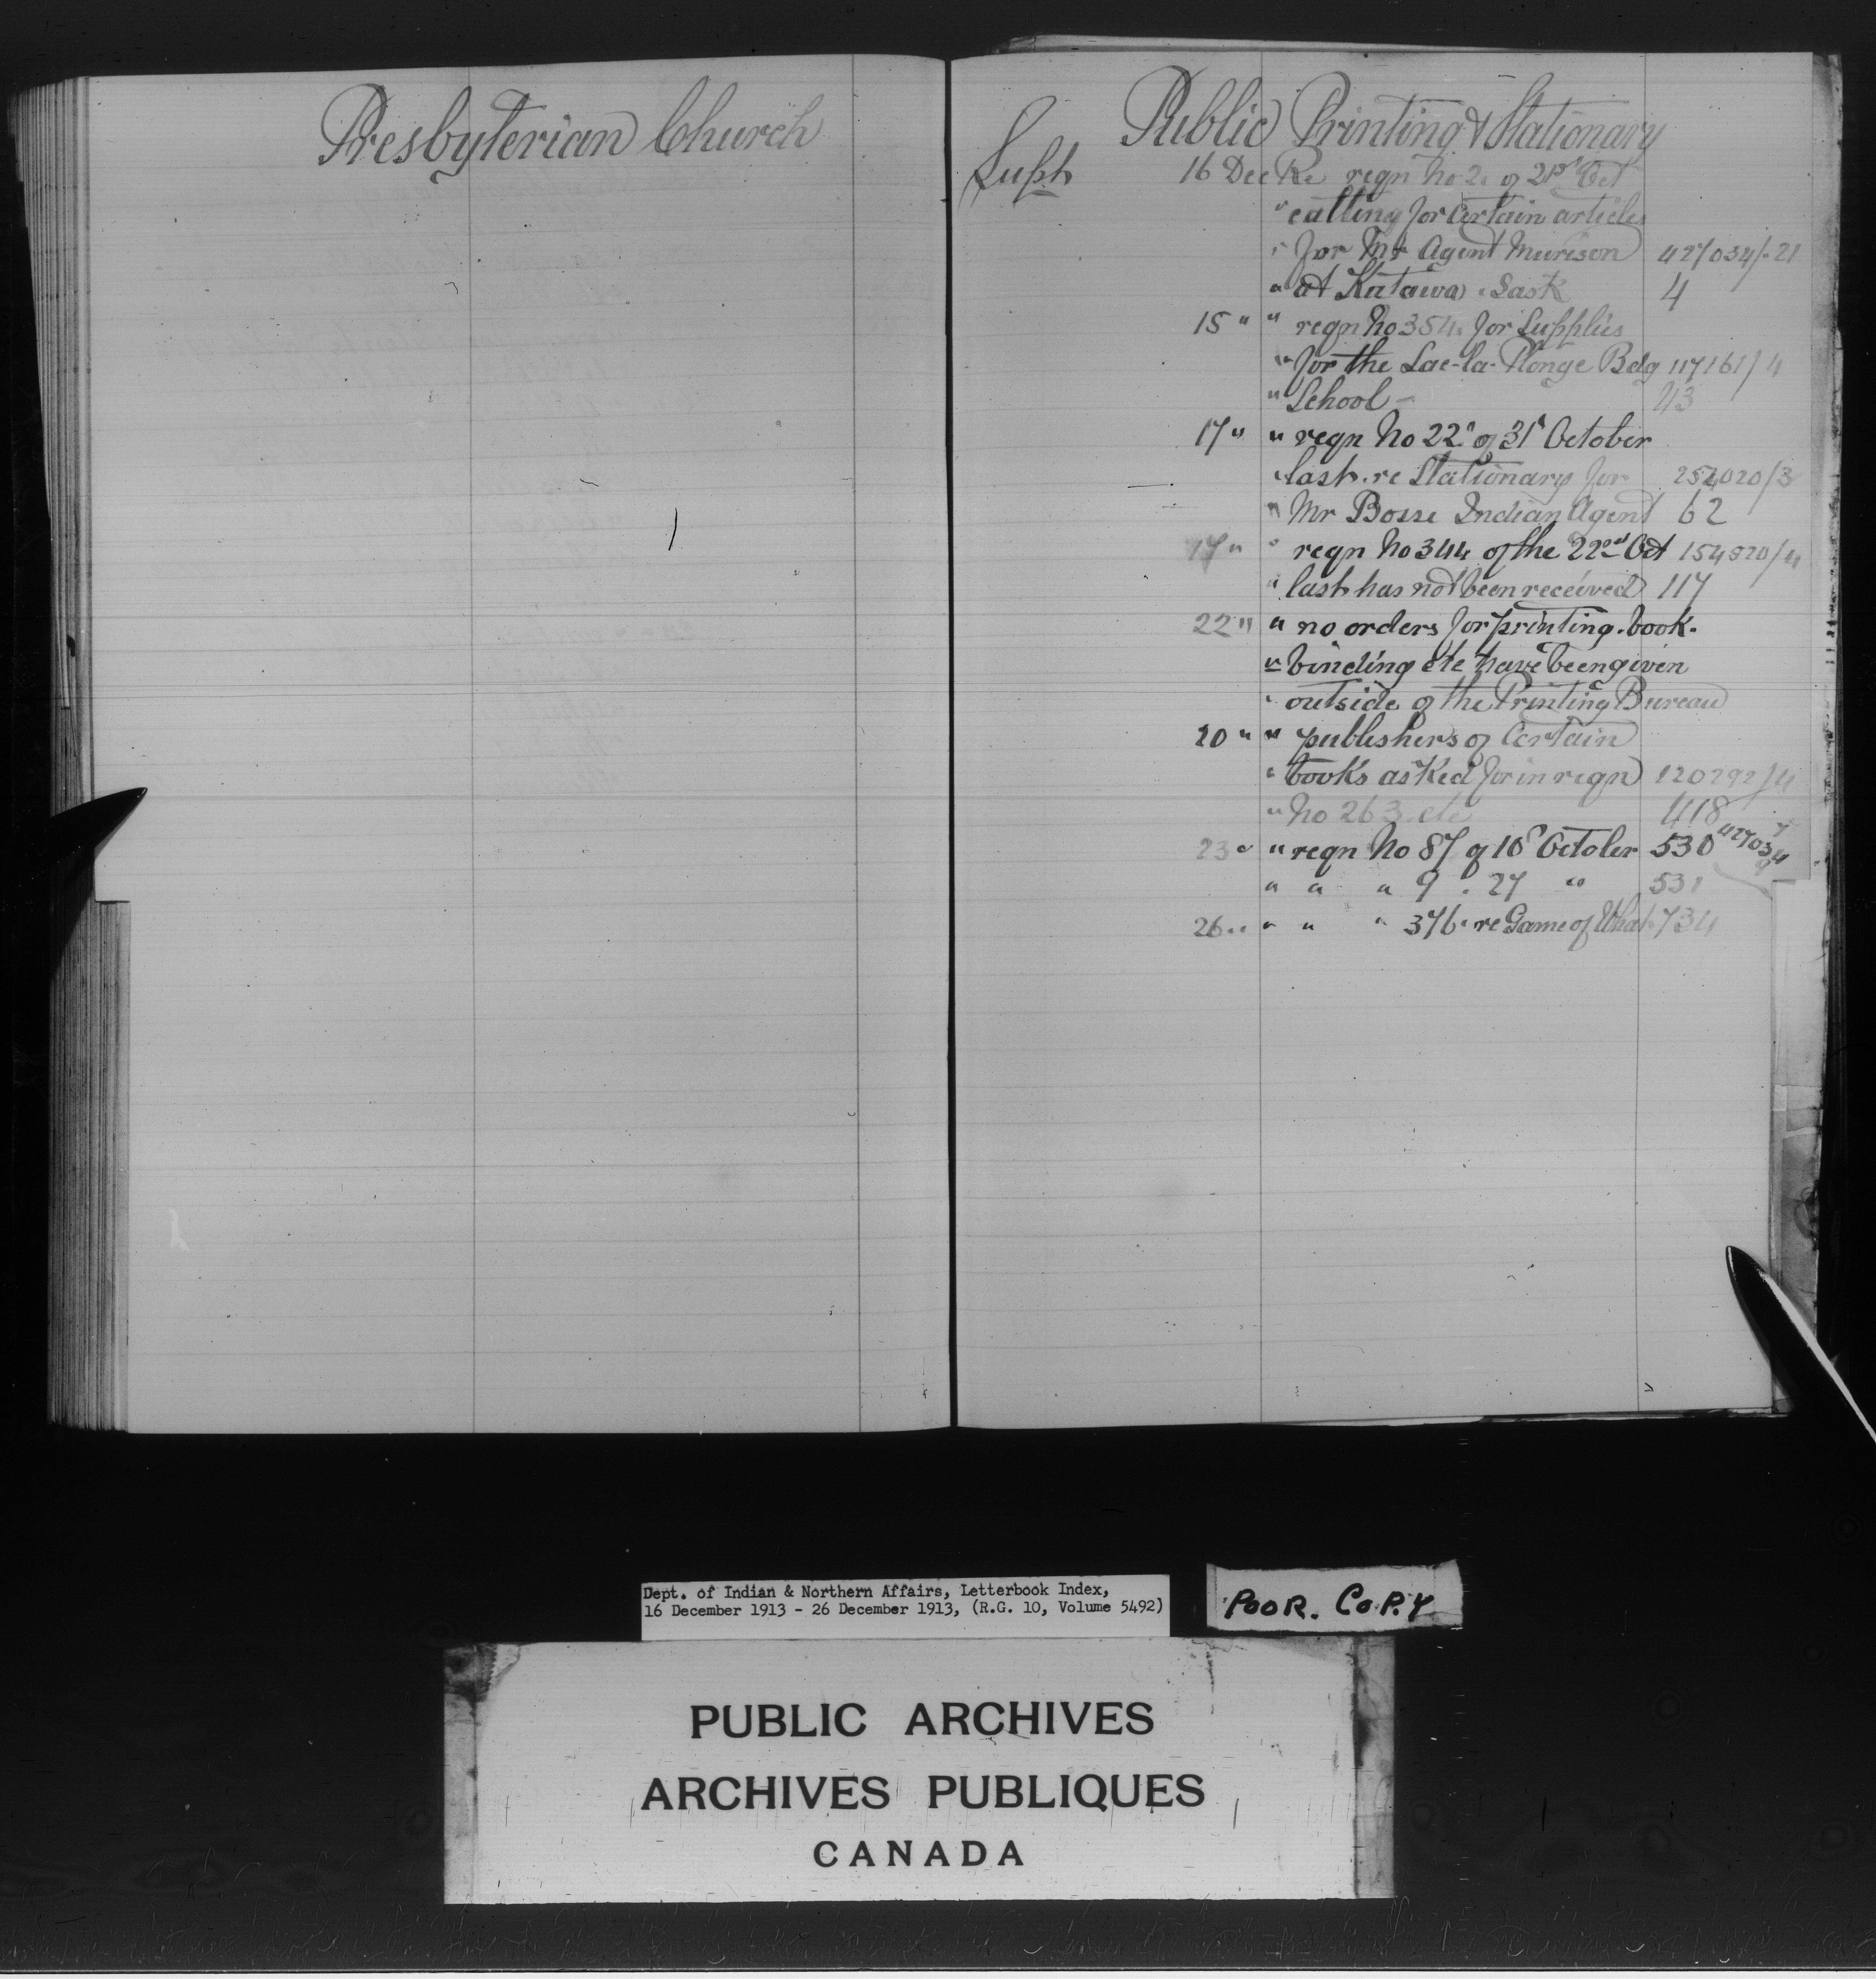 Presbyterian Church
Public Printing & Stationary
Supt
16 Dec Re reqn No 2. of 21st Oct
" calling for Certain articles
" for Mr Agent Murison 427034/-21
" at Katawa . Sask 4
15 " " reqn No 354. for Supplies
" for the Lac-la-Plonge Bdg 117161/4
" School – 43
17 " " reqn No 22 of 31 October
" last. re Stationary for 254020/3
" Mr Bosse Indian Agent 62
17 " " reqn No 344 of the 22nd Oct 154820/4
" last has not been received 117
22 " " no orders for printing. book.
" binding etc have been given
" outside of the Printing Bureau
20 " " publishers of Certain
" books asked for in reqn 120292/4
" No 263. etc 418
23 " " reqn No 87 of 10 October 530 427034
" " " 9 . 27 " 531
26 " " " " 376. re Game of What 734
Dept. of Indian & Northern Affairs, Letterbook Index,
16 December 1913 - 26 December 1913, (R.G. 10, Volume 5492)
POOR. COPY
PUBLIC ARCHIVES
ARCHIVES PUBLIQUES
CANADA